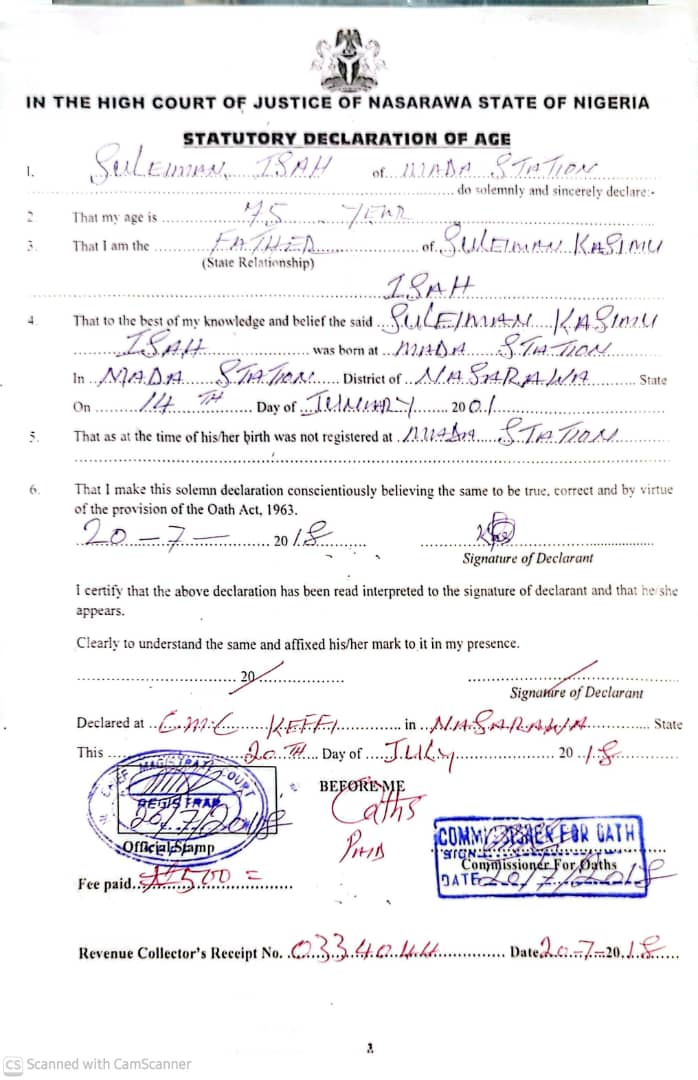 IN THE HIGH COURT OF JUSTICE OF NASARAWA STATE OF NIGERIA
STATUTORY DECLARATION OF AGE
1. SULEIMAN ISAH of MADA STATION
do solemnly and sincerely declare:-
2 That my age is 75 YEAR
3. That I am the FATHER of SULEIMAN KASIMU
(State Relationship)
ISAH
4. That to the best of my knowledge and belief the said SULEIMAN KASIMU
ISAH was born at MADA STATION
In MADA STATION District of NASARAWA State
On 14TH Day of 2001
5. That as at the time of his/her birth was not registered at MADA STATION
6. That I make this solemn declaration conscientiously believing the same to be true, correct and by virtue
of the provision of the Oath Act, 1963.
20-7- 2018
Signature of Declarant
I certify that the above declaration has been read interpreted to the signature of declarant and that he/she
appears.
Clearly to understand the same and affixed his/her mark to it in my presence.
20
Signature of Declarant
Declared at C.M.C KEFFI in NASARAWA State
This 20TH Day of JULY 2018
CHIEF MAGISTRATE COURT
REGISTRAR
20/7/2018
Official Stamp
BEFORE ME
Oaths
PAID
COMMISSIONER FOR OATH
SIGN
Commissioner For Oaths
DATE 20/7/2018
Fee paid ₦500=
Revenue Collector's Receipt No. 0334044 Date 20-7-2018
CS Scanned with CamScanner